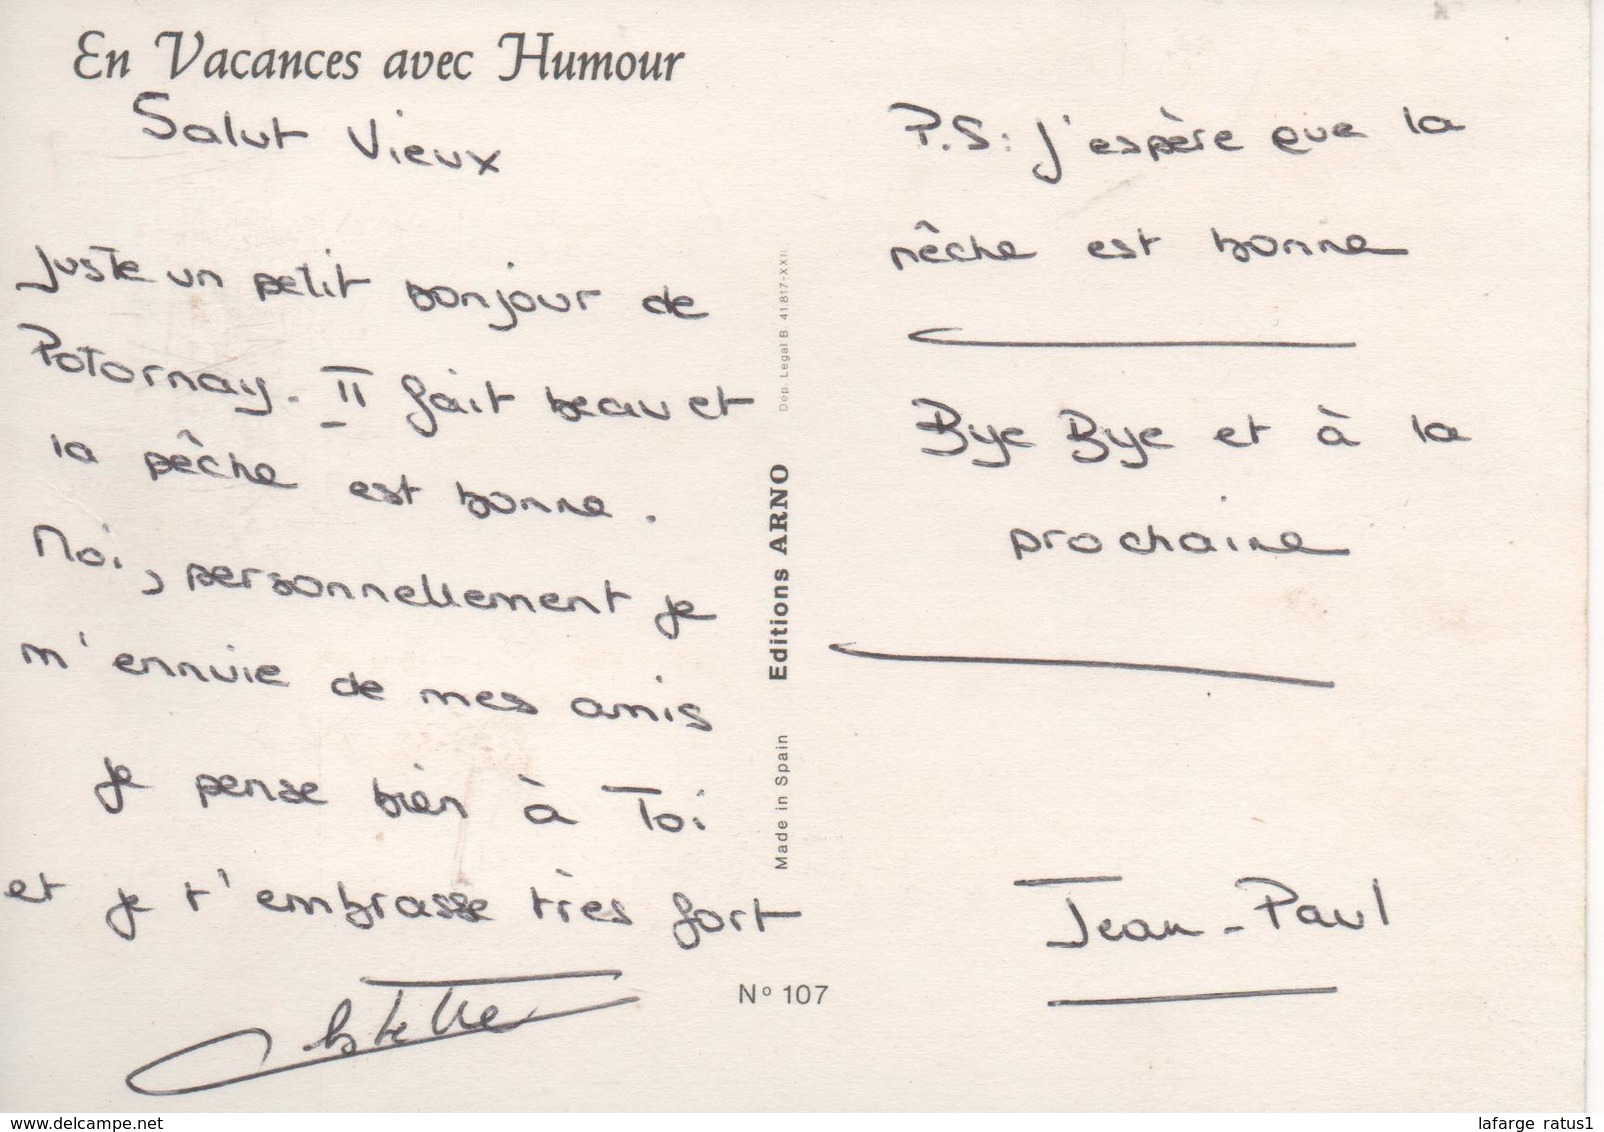 En Vacances avec Humour
Salut Vieux
Juste un petit bonjour de
Potornay. Il fait beau et
la pêche est bonne.
Moi, personnellement je
m'ennuie de mes amis
je pense bien à Toi
et je t'embrasse très fort
P.S: J'espère que la
pêche est bonne
Bye Bye et à la
prochaine
Jean-Paul
Dep. Legal B 41.817-XXII
Editions ARNO
Made in Spain
Nº 107
lafarge ratus1